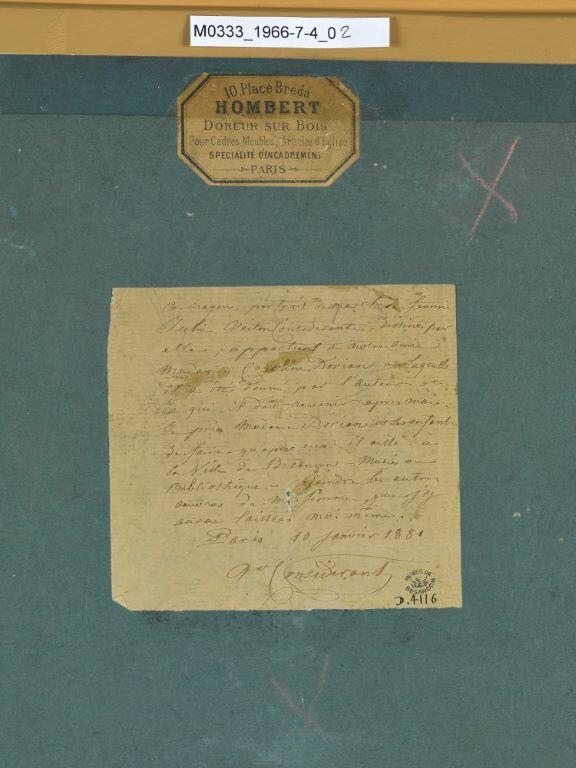 M0333_1966-7-4_02
10, Place Bréda
HOMBERT
DOREUR SUR BOIS
Pour Cadres, Meubles, Articles d'Eglise
SPÉCIALITÉ D'ENCADREMENT
PARIS
Ce crayon, portrait de ma chère femme
Julie Victor Considerant, dessiné par
elle, appartient à notre amie
Madame Caroline Dorian à laquelle
il a été donné par l'auteur et
à qui il doit revenir après moi.
Je prie Madame Dorian et ses enfants
de faire qu'après eux il aille à
la Ville de Besançon - Musée ou
Bibliothèque - rejoindre les autres
œuvres de ma femme que j'y
aurai laissées moi même.
Paris 10 janvier 1881
Considerant
MUSÉE DE
BESANÇON
D.4116